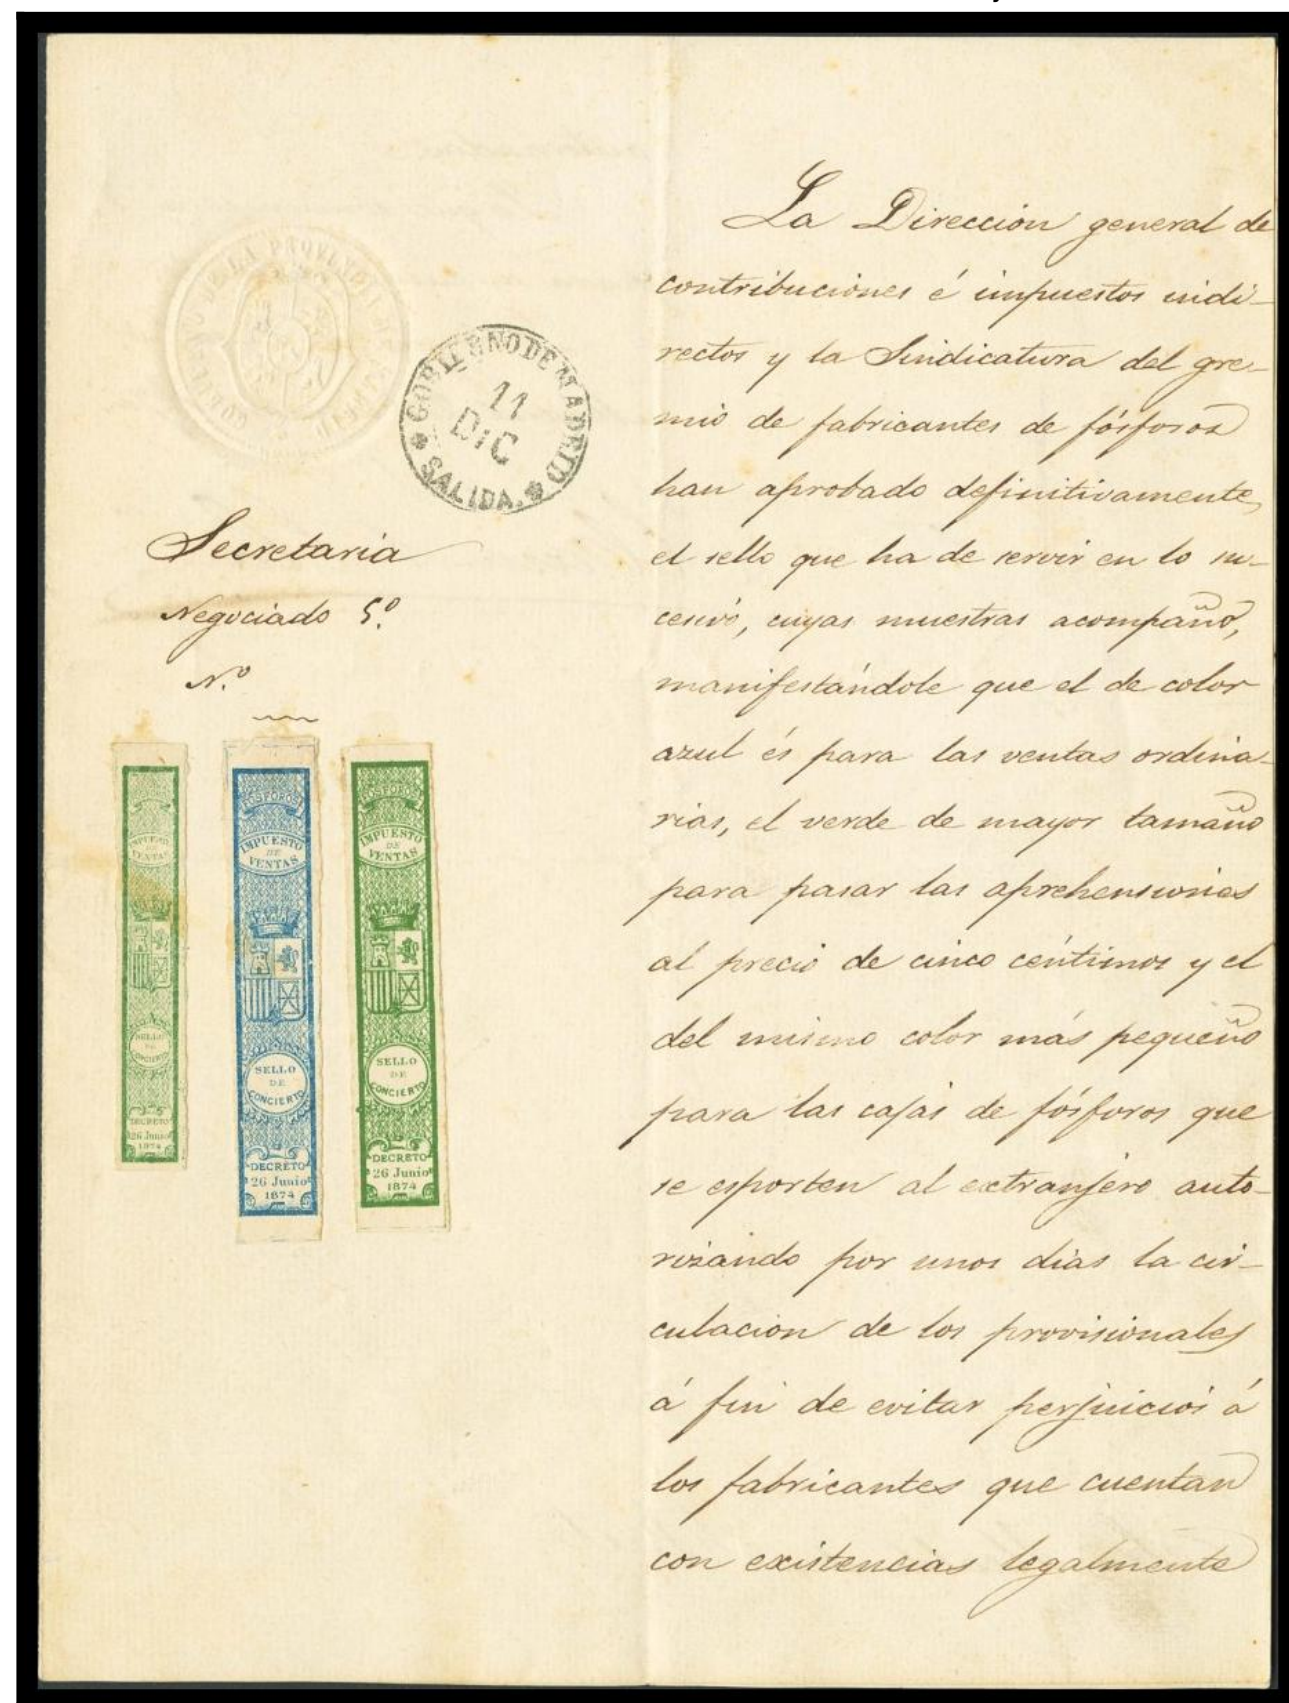 GOBIERNO DE LA PROVINCIA DE MADRID
GOBIERNO DE MADRID
11
DIC
SALIDA.
Secretaria
Negociado 5º
N.º
FOSFOROS
IMPUESTO
DE
VENTAS
SELLO
DE
CONCIERTO
DECRETO
26 Junio
1874
FOSFOROS
IMPUESTO
DE
VENTAS
SELLO
DE
CONCIERTO
DECRETO
26 Junio
1874
FOSFOROS
IMPUESTO
DE
VENTAS
SELLO
DE
CONCIERTO
DECRETO
26 Junio
1874
La Dirección general de
contribuciones é impuestos indi-
rectos y la Sindicatura del gre-
mio de fabricantes de fósforos
han aprobado definitivamente,
el sello que ha de servir en lo su-
cesivo, cuyas muestras acompaño,
manifestándole que el de color
azul és para las ventas ordina-
rias, el verde de mayor tamaño
para pasar las aprehensiones
al precio de cinco céntimos y el
del mismo color más pequeño
para las cajas de fósforos que
se esporten al extranjero auto-
rizando por unos dias la cir-
culacion de los provisionales
á fin de evitar perjuicios á
los fabricantes que cuentan
con existencias legalmente